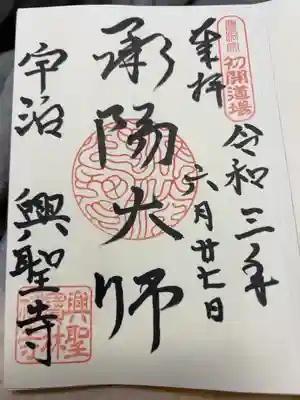 曹洞宗
初開道場
奉拝
令和三年
六月廿七日
承陽大師
宇治 興聖寺